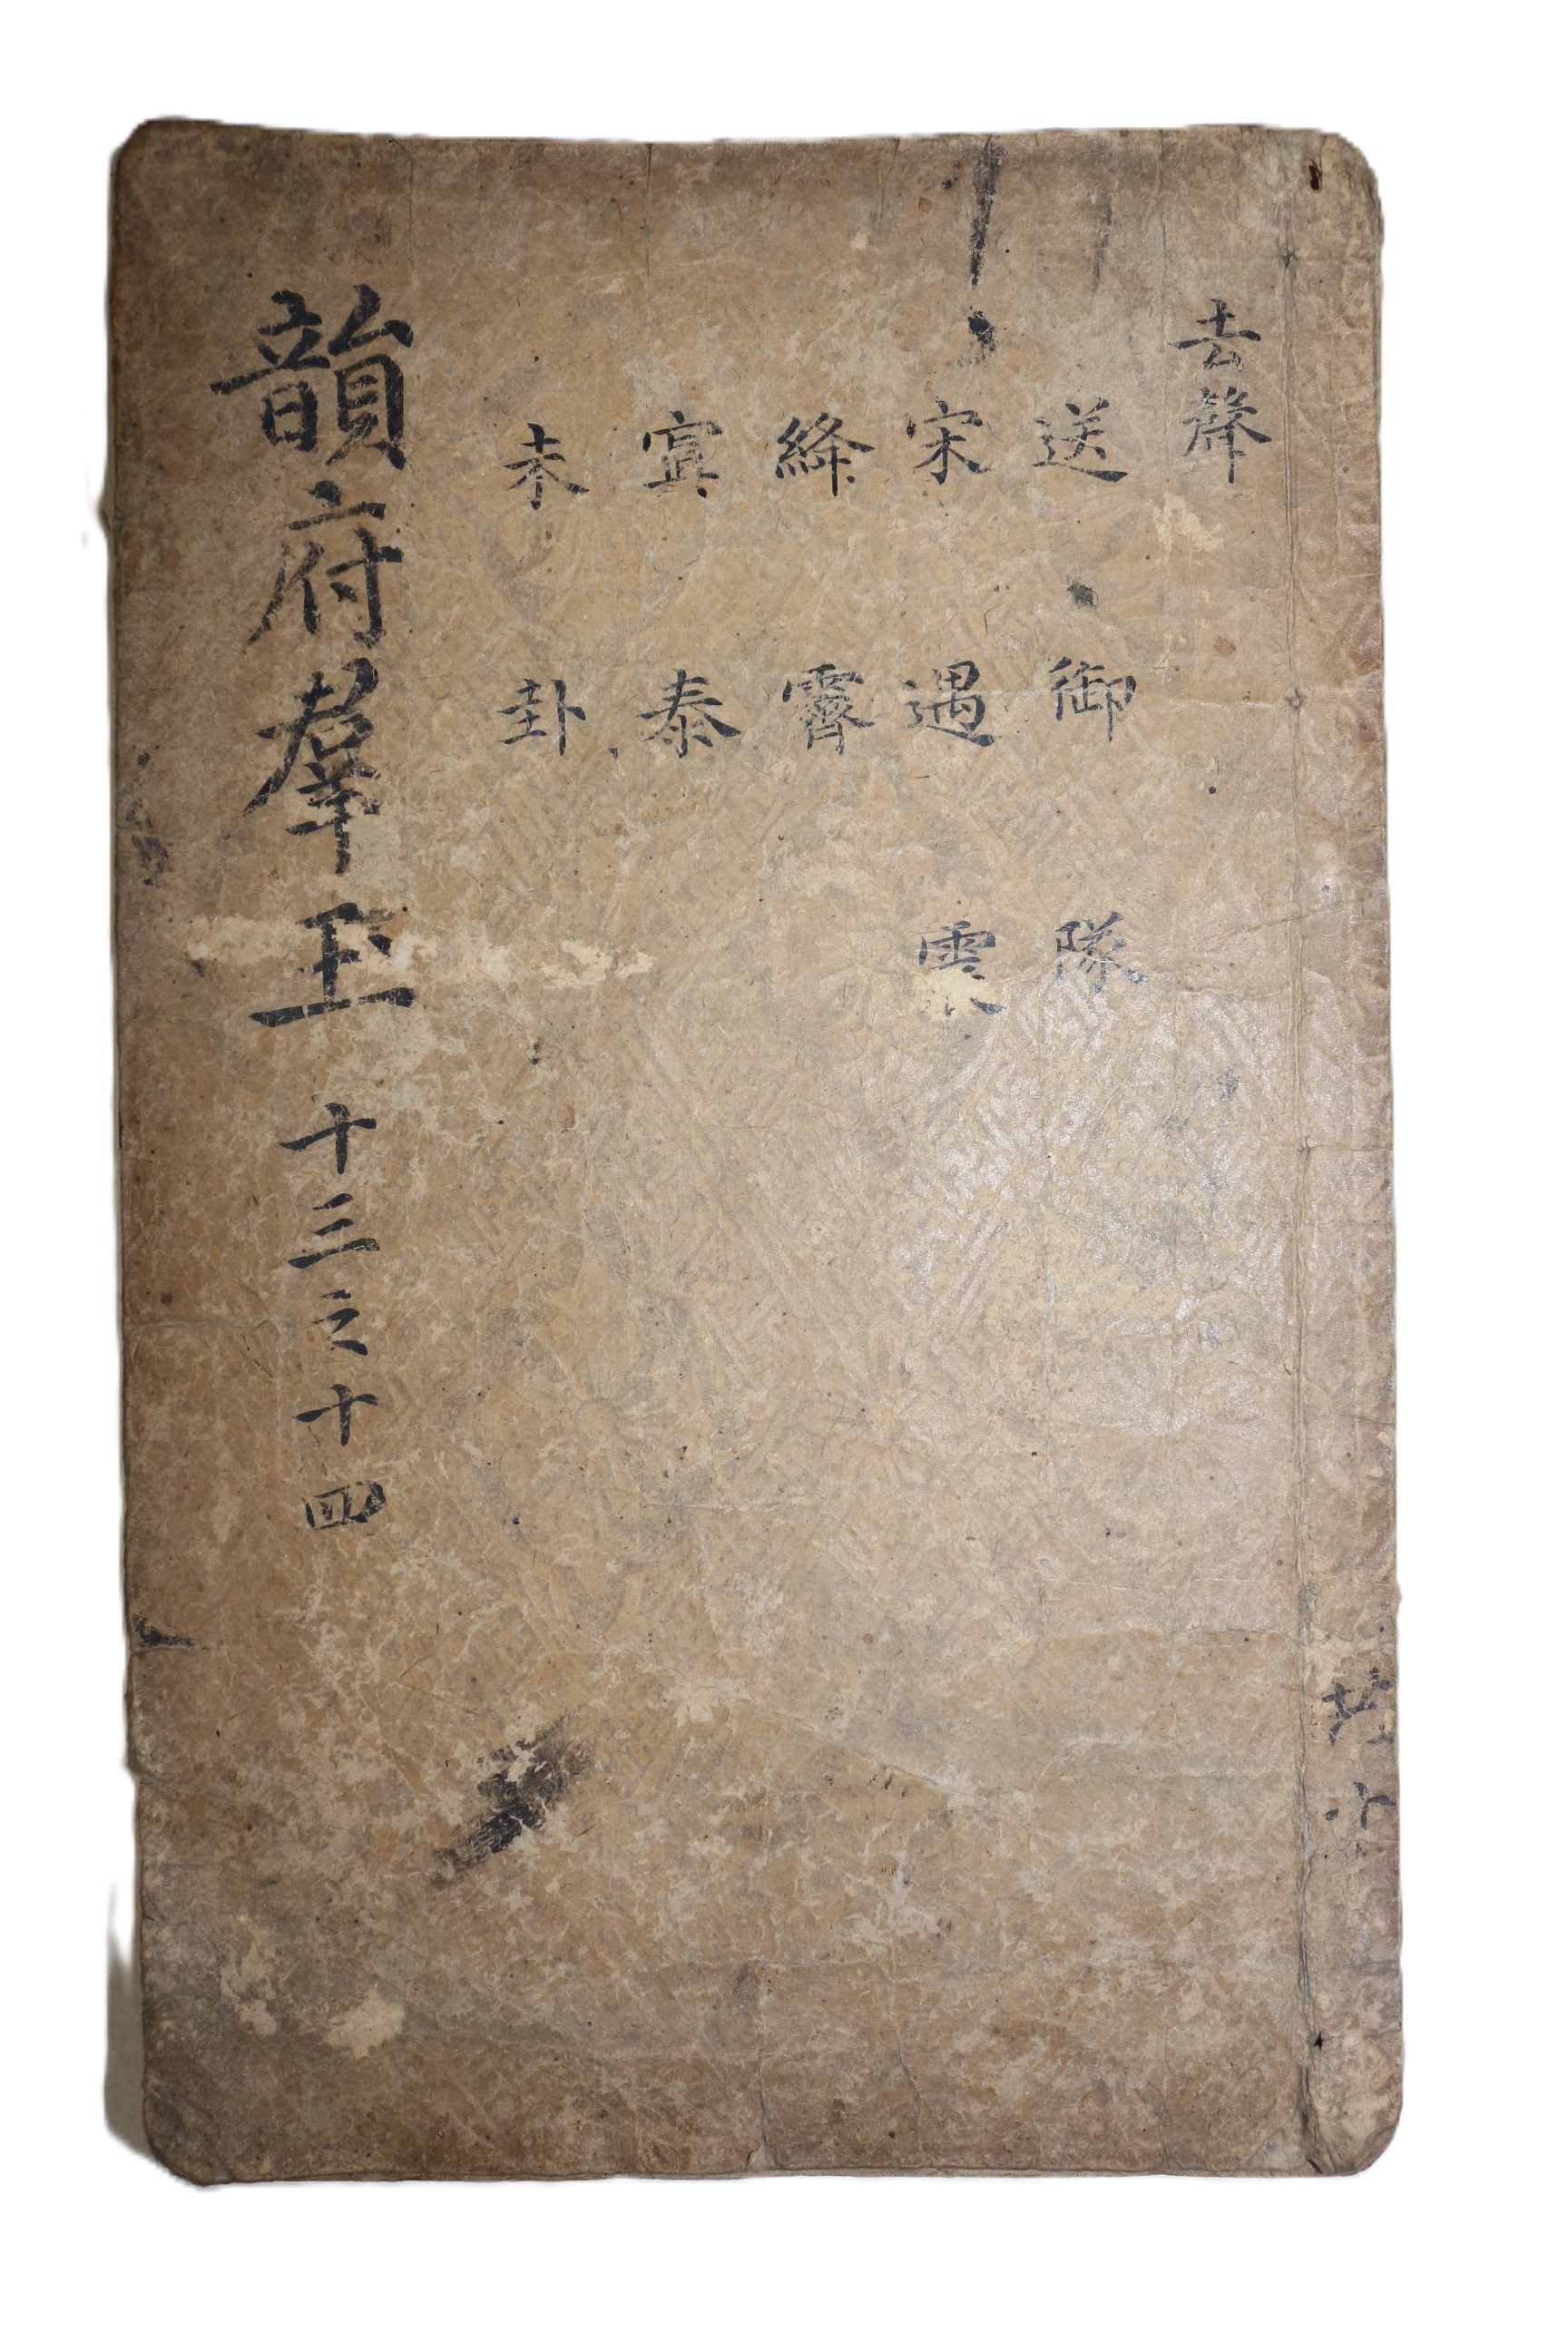 去聲
送 御 隊
宋 遇 震
絳 霽
寘 泰
未 卦
韻府羣玉 十三之十四